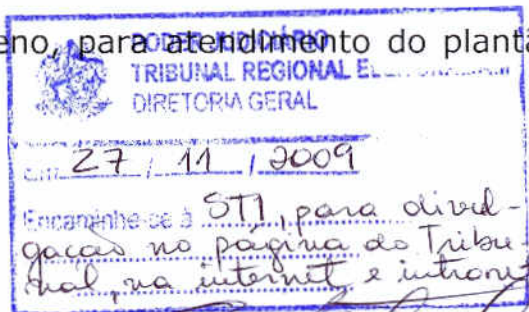 eno, para atendimento do plantã
PODER JUDICIÁRIO
TRIBUNAL REGIONAL
DIRETORIA GERAL
Em 27 / 11 / 2009
Encaminhe-se à STI, para divul-
gação na página do Tribu-
nal, na internet e intranet